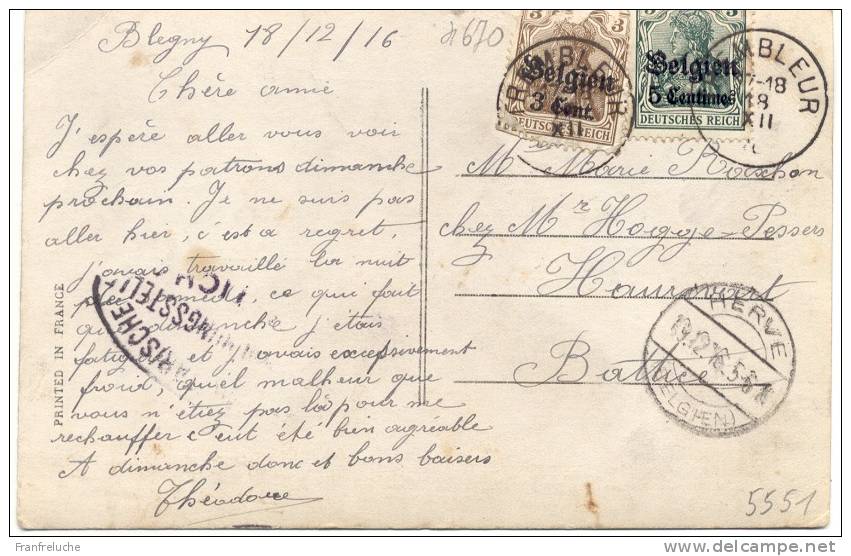 Blegny 18/12/16
Chère amie
J'espère aller vous voir
chez vos patrons dimanche
prochain. Je ne suis pas
aller hier, c'est a regret,
j'avais travaillé la nuit
ce qui fait
dimanche j'étais
fatigué et j'avais excepsivement
froid, quel malheur que
vous n'étiez pas là pour me
rechauffer c'eut été bien agréable
A dimanche donc et bons baisers
Théodore
PRINTED IN FRANCE
4670
3 3
Belgien
3 Cent.
DEUTSCHES REICH
Belgien
5 Centimes
DEUTSCHES REICH
REMBLEUR
XII
ABLEUR
7-18
18
XII
M Marie
chez Mr Hogge-Pessers
Battice
HERVE
19.12.16.5-6N
(BELGIEN)
5551
Franfreluche
delcampe.net